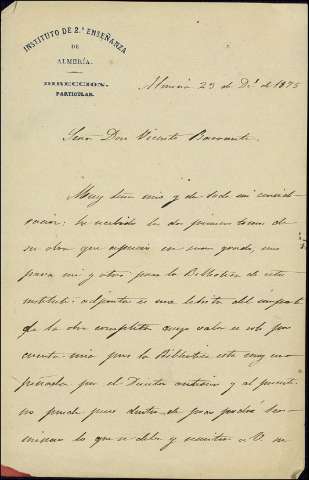 INSTITUTO DE 2.ª ENSEÑANZA
DE
ALMERÍA.
DIRECCION.
PARTICULAR.
Almería 23 de D.e de 1875
Señor Don Vicente Barrantes.
Muy Sr mio y de toda mi consid
eracion: he recibido los dos primeros tomos de
su obra que aprecio en sumo grado, uno
para mi y otro para la Biblioteca de este
instituto: adjunta es una letrita del importe
de la obra completa cuyo valor es solo por
cuenta mia pues la Biblioteca esta muy em
peñada por el Director anterior y al presente
no puede pues dentro de poco podré ter
minar lo que se debe y remitir a V un